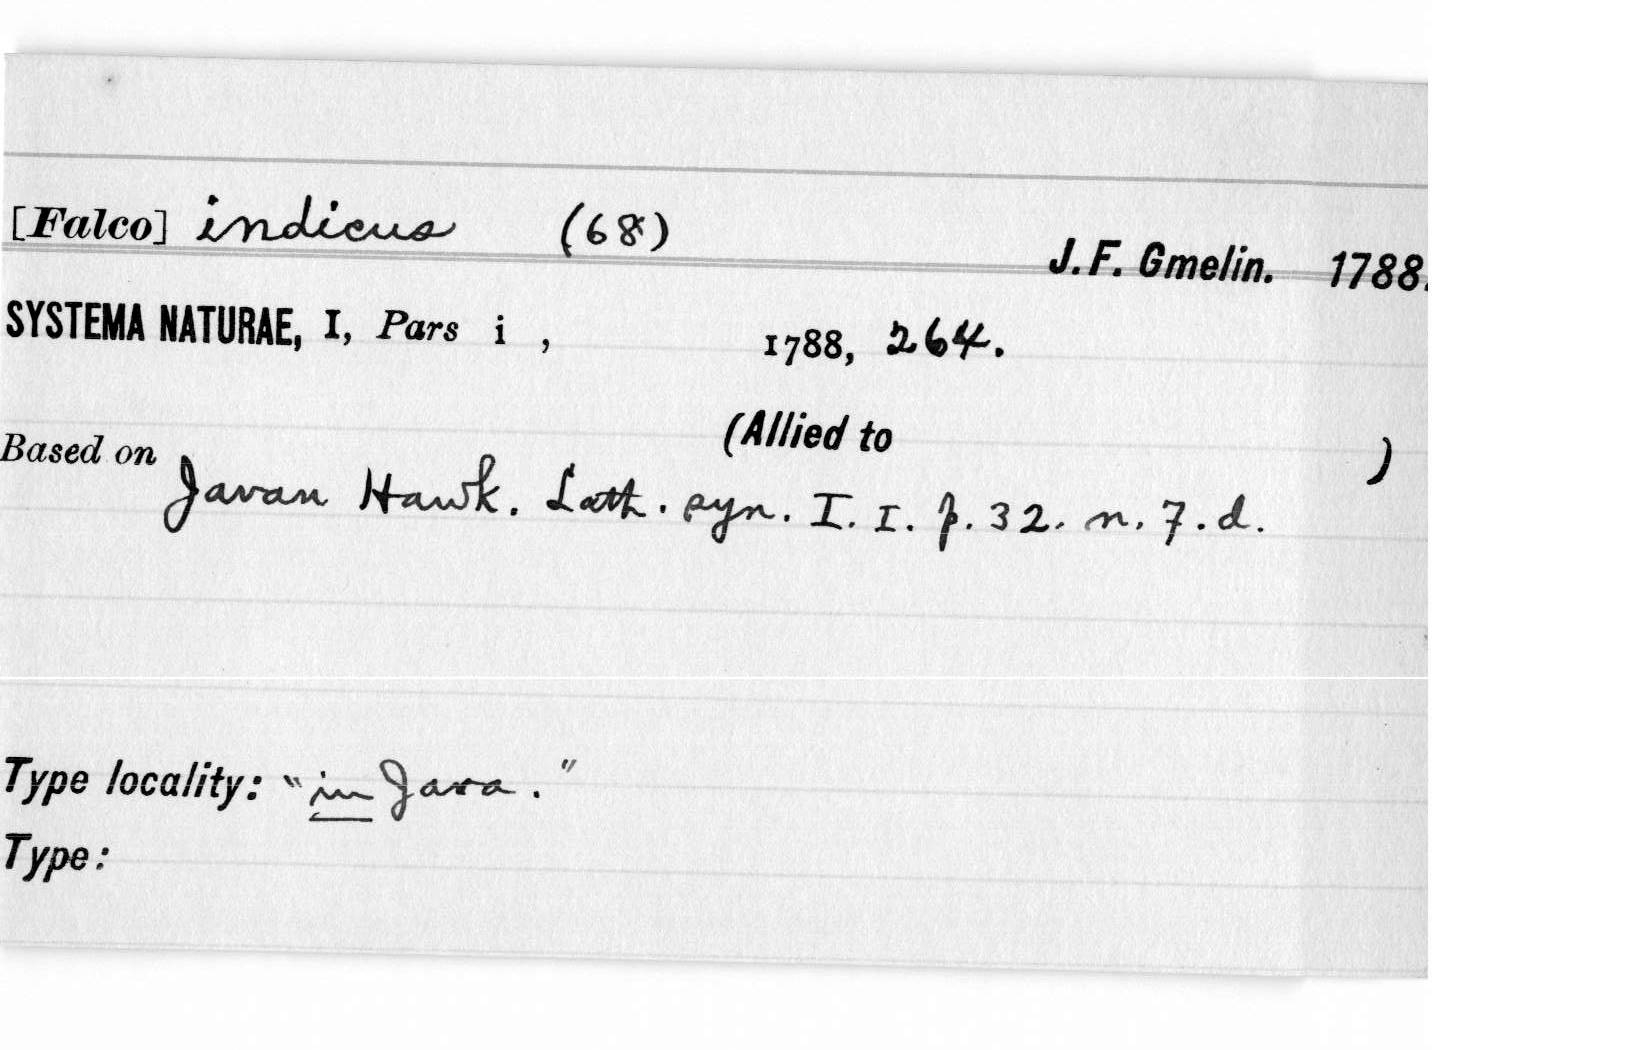 [Falco] indicus (68)
J. F. Gmelin. 1788.
SYSTEMA NATURAE, I, Pars i , 1788, 264.
(Allied to )
Based on Javan Hawk. Lath. syn. I. I. p. 32. n. 7. d.
Type locality: "in Java."
Type: